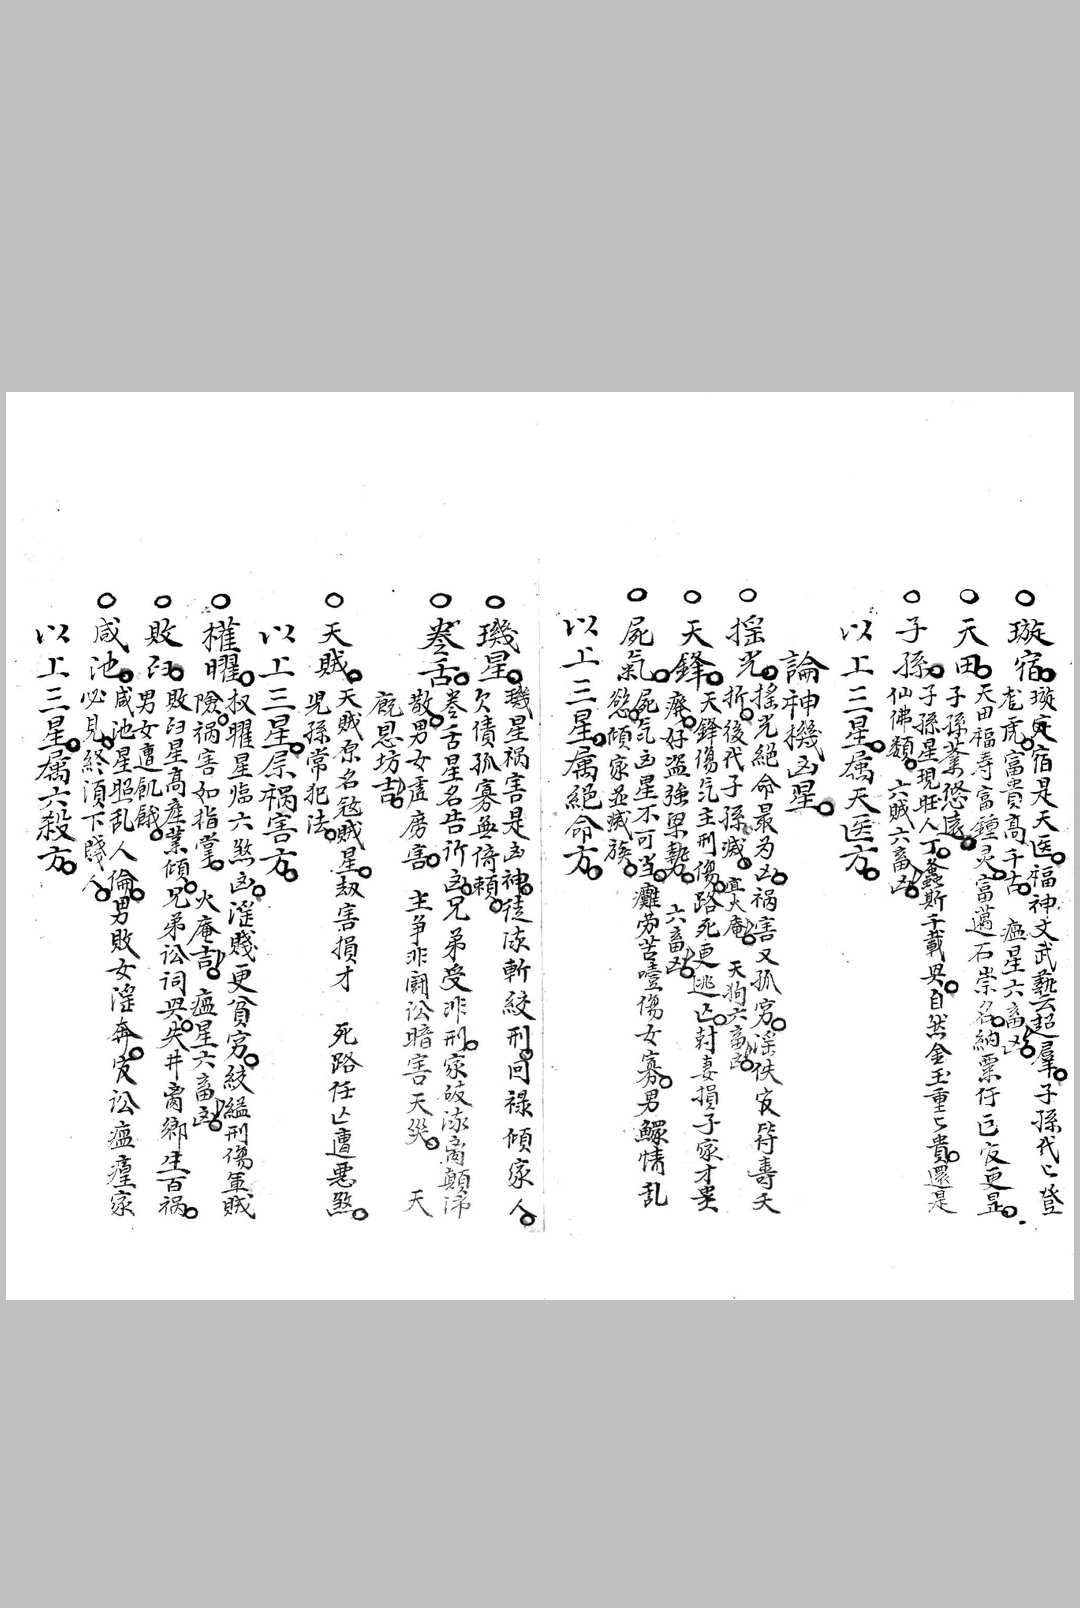 ○璇宿。璇宿是天医。福神文武藝云超羣。子孫代〻登
尨虎。富貴高千古。瘟星六畜凶。
○天田。天田福寿富鍾灵。富邁石崇名。納粟行已宜更昰。
子孫菉悠遠。
○子孫。子孫星現旺人丁。螽斯千載奥。自然金玉重〻貴。還是
仙佛類。六賊六畜凶。
以上三星。属天医方。
論神機凶星。
○搖光。搖光絕命最为凶。祸害又孤穷。淫佚宜防寿夭
折。後代子孫滅。宜火庵。天狗六畜凶。
○天鋒。天鋒傷気主刑傷。路死更逃亡。尅妻損子家才患
癆。好盗強梁勢。六畜凶。
○屍氣。屍気凶星不可当。癱劳苦噎傷女寡。男鰥情乱
慾。傾家並滅族。
以上三星。属絕命方。
○璣星。璣星祸害是凶神。徒流斬絞刑。囘禄傾家人。
欠債孤寡無倚賴。
○卷舌。卷舌星名告訐凶。兄弟受非刑。家破流离顛沛
散。男女虛痨害。主争非鬪訟暗害天災。天
廐恩坊吉。
○天賊。天賊原名尅賊星。刼害損才 死路任亡遭悪煞。
児孫常犯法。
以上三星。屬祸害方。
○權曜。权曜星临六煞凶。淫賤更貧穷。絞縊刑傷軍賊
險。祸害如指掌。火庵吉。瘟星六畜凶。
○敗臼。敗臼星高産業傾。兄弟訟詞興。失井离鄉生百祸。
男女遭飢餓。
○咸池。咸池星照乱人倫。男敗女淫奔。宜訟瘟癀家
必見。終須下賤人。
以上三星。属六殺方。